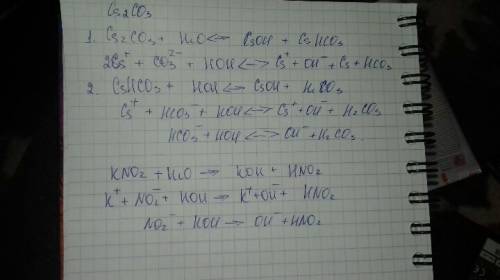 Cs2CO3
1. Cs2CO3 + H2O <=> CsOH + CsHCO3
2Cs⁺ + CO3²⁻ + HOH <-> Cs⁺ + OH⁻ + Cs + HCO3
2. CsHCO3 + HOH <=> CsOH + H2CO3
Cs⁺ + HCO3⁻ + HOH <-> Cs⁺ + OH⁻ + H2CO3
HCO3⁻ + HOH <-> OH⁻ + H2CO3
KNO2 + H2O → KOH + HNO2
K⁺ + NO2⁻ + HOH → K⁺ + OH⁻ + HNO2
NO2⁻ + HOH → OH⁻ + HNO2